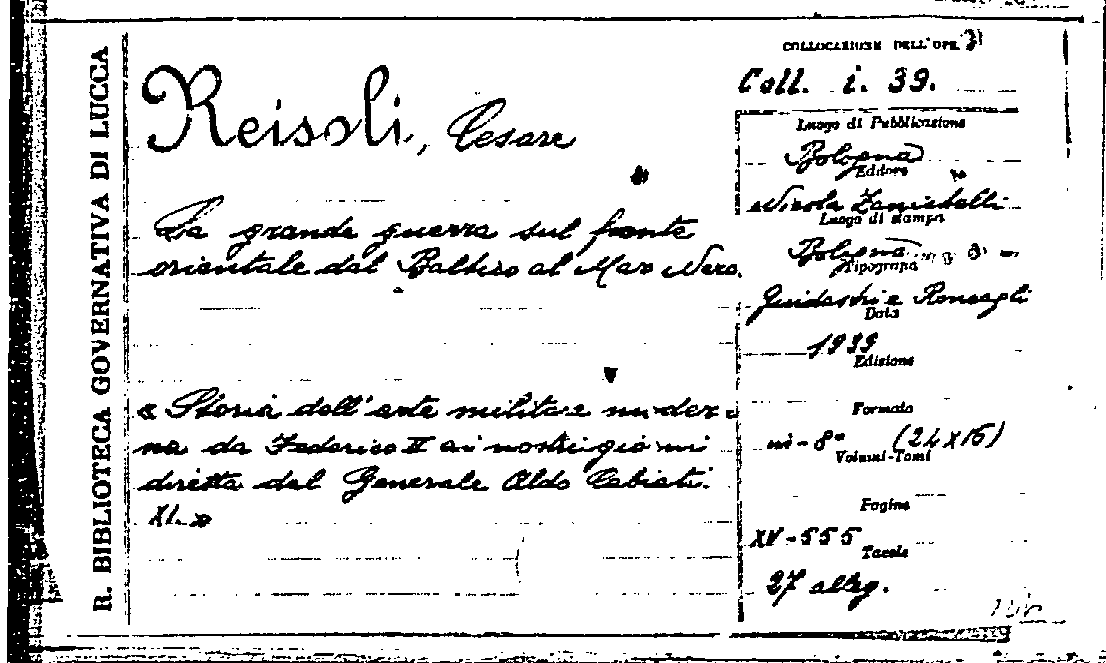 R. BIBLIOTECA GOVERNATIVA DI LUCCA
Reisoli, Cesare
La grande guerra sul fronte
orientale dal Baltico al Mar Nero.
« Storia dell'arte militare moder-
na da Federico II ai nostri giorni
diretta dal Generale Aldo Cabiati.
XI. »
COLLOCAZIONE DELL'OPERA
Coll. i. 39.
Luogo di Pubblicazione
Bologna
Editore
Nicola Zanichelli
Luogo di stampa
Bologna
Tipografia
Data
1939
Edizione
Formato
in-8° (24x16)
Volumi-Tomi
Pagine
XV-555
Tavole
27 alleg.